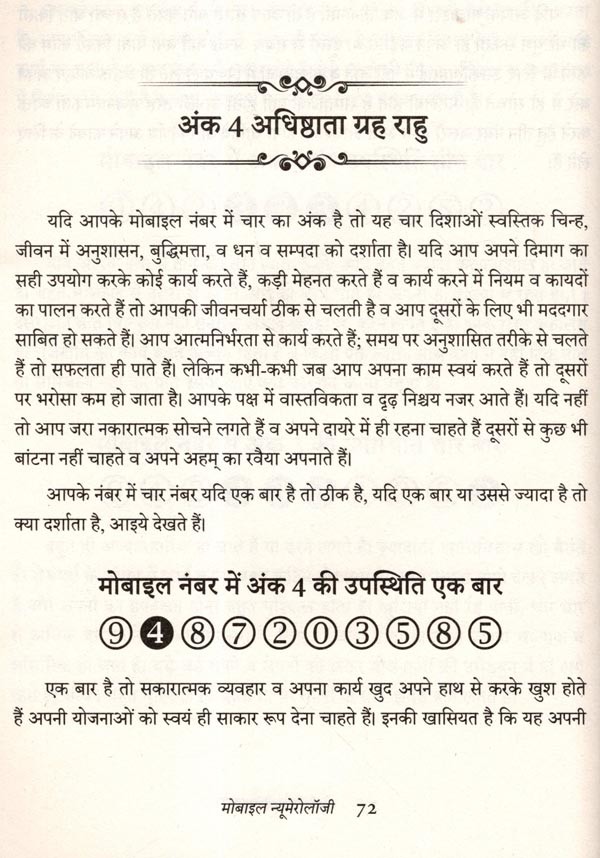 अंक 4 अधिष्ठाता ग्रह राहु
यदि आपके मोबाइल नंबर में चार का अंक है तो यह चार दिशाओं स्वस्तिक चिन्ह,
जीवन में अनुशासन, बुद्धिमत्ता, व धन व सम्पदा को दर्शाता है। यदि आप अपने दिमाग का
सही उपयोग करके कोई कार्य करते हैं, कड़ी मेहनत करते हैं व कार्य करने में नियम व कायदों
का पालन करते हैं तो आपकी जीवनचर्या ठीक से चलती है व आप दूसरों के लिए भी मददगार
साबित हो सकते हैं। आप आत्मनिर्भरता से कार्य करते हैं; समय पर अनुशासित तरीके से चलते
हैं तो सफलता ही पाते हैं। लेकिन कभी-कभी जब आप अपना काम स्वयं करते हैं तो दूसरों
पर भरोसा कम हो जाता है। आपके पक्ष में वास्तविकता व दृढ़ निश्चय नजर आते हैं। यदि नहीं
तो आप जरा नकारात्मक सोचने लगते हैं व अपने दायरे में ही रहना चाहते हैं दूसरों से कुछ भी
बांटना नहीं चाहते व अपने अहम् का रवैया अपनाते हैं।
आपके नंबर में चार नंबर यदि एक बार है तो ठीक है, यदि एक बार या उससे ज्यादा है तो
क्या दर्शाता है, आइये देखते हैं।
मोबाइल नंबर में अंक 4 की उपस्थिति एक बार
9 4 8 7 2 0 3 5 8 5
एक बार है तो सकारात्मक व्यवहार व अपना कार्य खुद अपने हाथ से करके खुश होते
हैं अपनी योजनाओं को स्वयं ही साकार रूप देना चाहते हैं। इनकी खासियत है कि यह अपनी
मोबाइल न्यूमेरोलॉजी 72